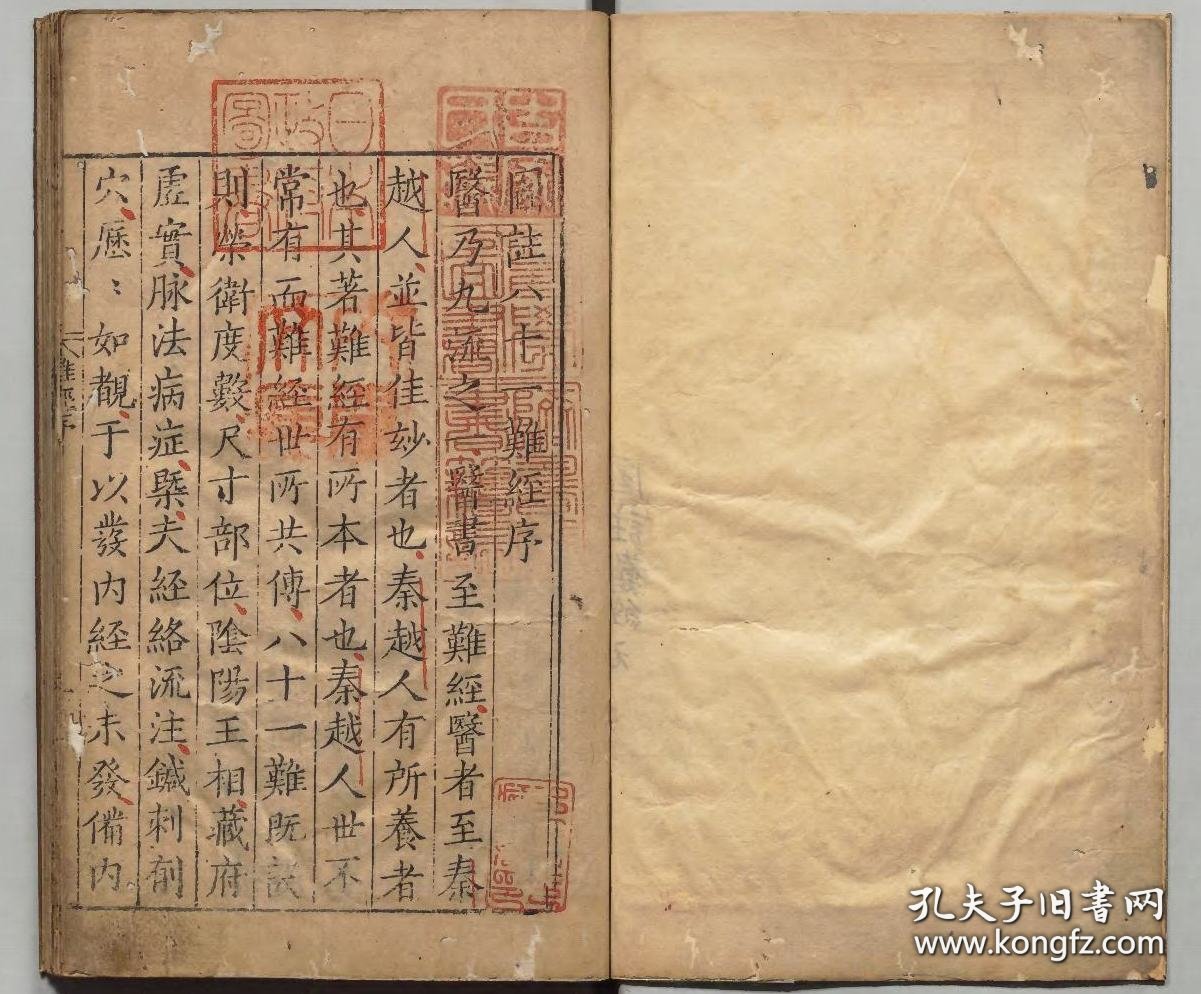 圖註八十一難經序
醫乃九流之一醫書至難經醫者至秦
越人並皆佳妙者也秦越人有所養者
也其著難經有所本者也秦越人世不
常有而難經世所共傳八十一難既設
則榮衛度數尺寸部位陰陽王相藏府
虛實脉法病症槩夫経絡流注鍼刺剤
穴歷〻如覩于以發内經之未發備内
孔夫子旧书网
www.kongfz.com